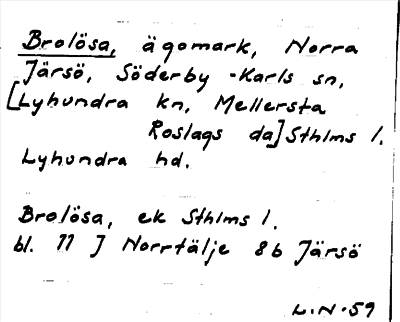 Brolösa, ägomark, Norra
Järsö, Söderby-Karls sn,
[Lyhundra kn, Mellersta
Roslags da] Sthlms l.
Lyhundra hd.
Brolösa, ek Sthlms l.
bl. 11 J Norrtälje 8b Järsö
L.N.59